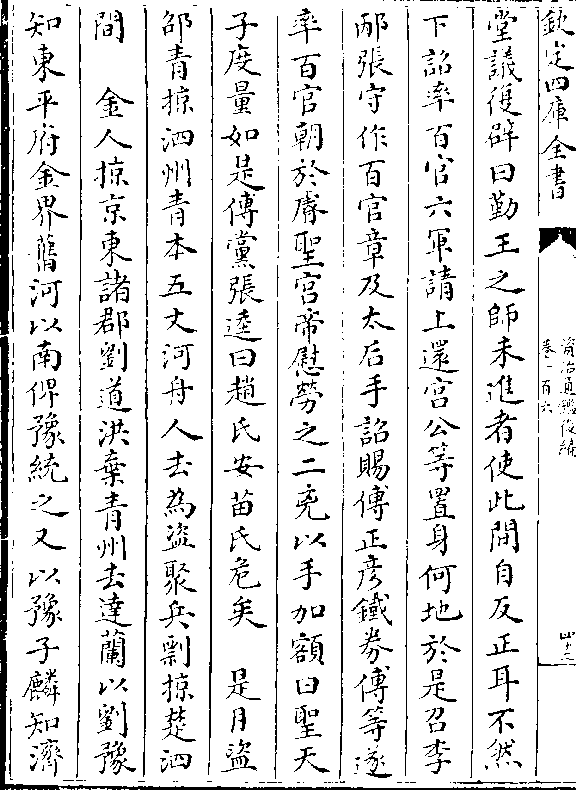 欽定四庫全書
資治通鑑後編
卷一百六
堂議復辟曰勤王之師未進者使此間自反正耳不然
下詔率百官六軍請上還宮公等置身何地於是召李
邴張守作百官章及太后手詔賜傅正彥鐵券傅等遂
率百官朝於睿聖宮帝慰勞之二兇以手加額曰聖天
子度量如是傅黨張逵曰趙氏安苗氏危矣　是月盜
邵青掠泗州青本五丈河舟人去為盜聚兵剽掠楚泗
間　金人掠京東諸郡劉道洪棄青州去達蘭以劉豫
知東平府金界舊河以南俾豫統之又以豫子麟知濟